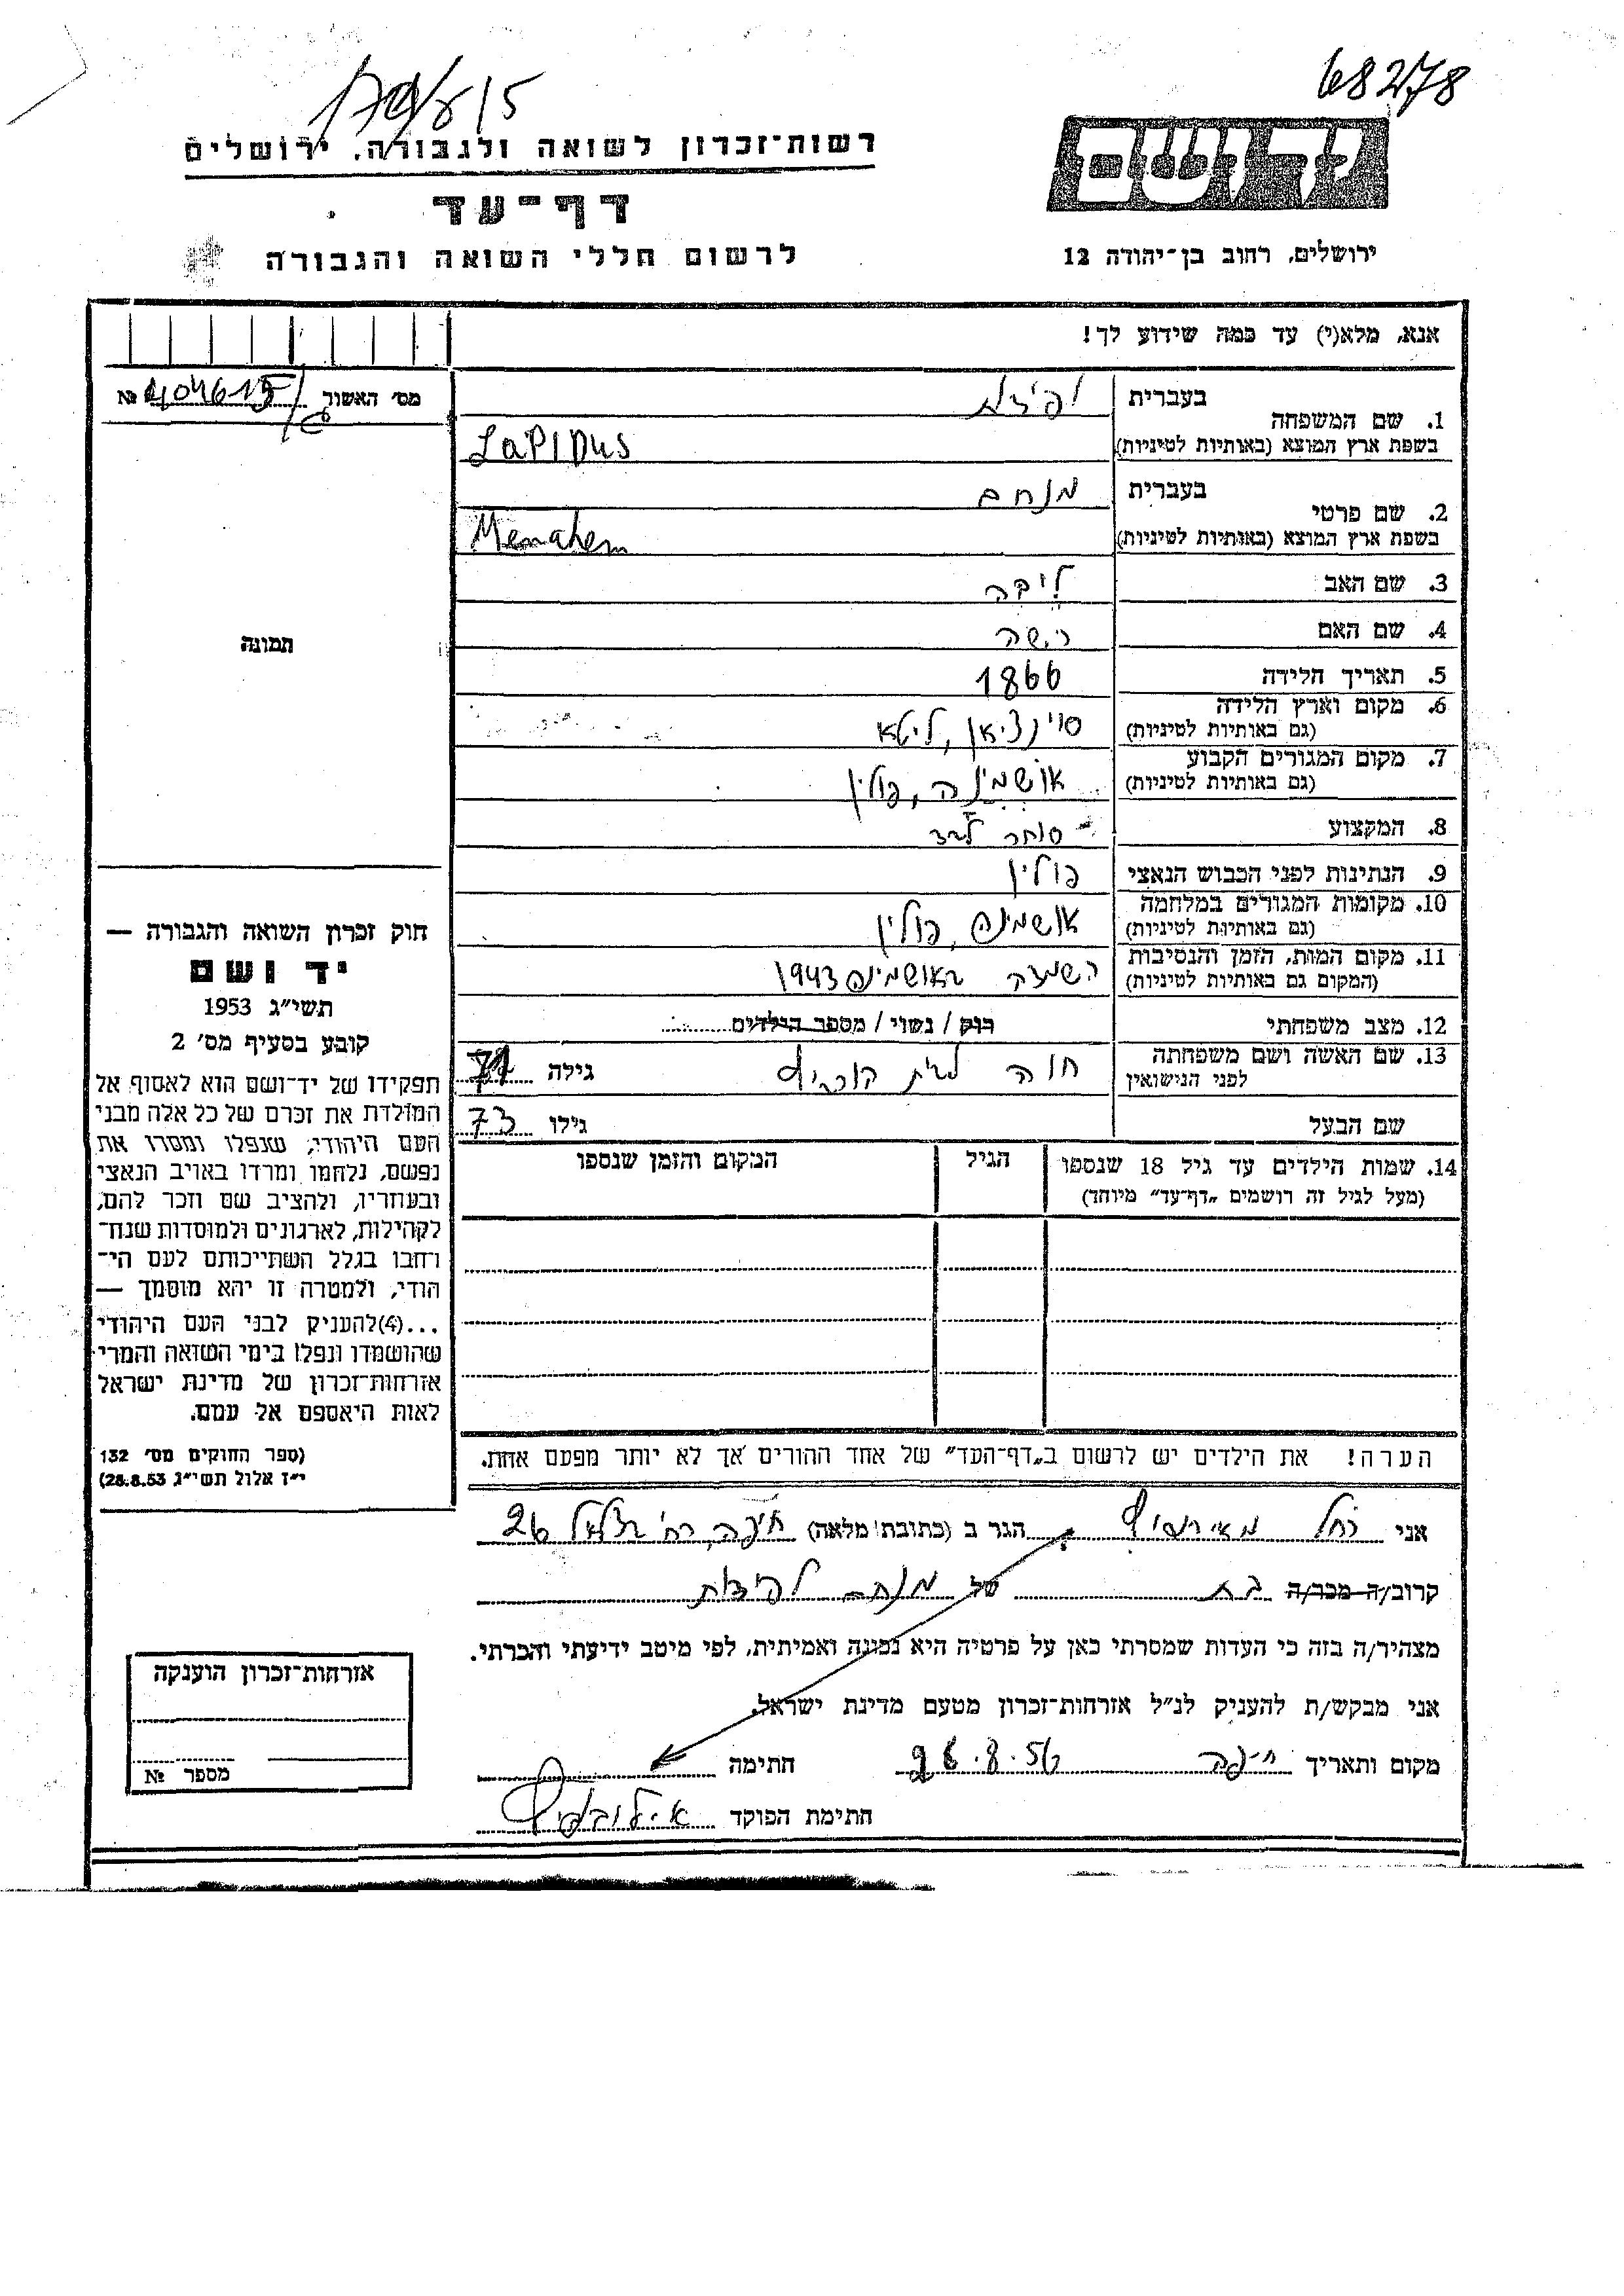 68278
רשות־זכרון לשואה ולגבורה, ירושלים
יד ושם
דף־עד
לרשום חללי השואה והגבורה
ירושלים, רחוב בן־יהודה 12
אנא, מלא(י) עד כמה שידוע לך!
מס׳ האשור № 404615
1. שם המשפחה
בעברית
בשפת ארץ המוצא (באותיות לטיניות)
LAPIDUS
2. שם פרטי
בעברית מנחם
בשפת ארץ המוצא (באותיות לטיניות)
Menahem
3. שם האב ליבה
4. שם האם
5. תאריך הלידה 1866
6. מקום וארץ הלידה
(גם באותיות לטיניות) סוינציאן, ליטא
7. מקום המגורים הקבוע
(גם באותיות לטיניות) אושמינה, פולין
8. המקצוע סוחר
9. הנתינות לפני הכבוש הנאצי פולין
10. מקומות המגורים במלחמה
(גם באותיות לטיניות) אושמינה, פולין
11. מקום המות, הזמן והנסיבות
(המקום גם באותיות לטיניות) באושמינה 1943
12. מצב משפחתי רוק / נשוי / מספר הילדים
13. שם האשה ושם משפחתה
לפני הנישואין חוה לבית גילה 71
שם הבעל גילו 73
14. שמות הילדים עד גיל 18 שנספו
(מעל לגיל זה רושמים „דף־עד״ מיוחד)
הגיל
המקום והזמן שנספו
הערה! את הילדים יש לרשום ב„דף־העד״ של אחד ההורים אך לא יותר מפעם אחת.
תמונה
חוק זכרון השואה והגבורה —
יד ושם
תשי״ג 1953
קובע בסעיף מס׳ 2
תפקידו של יד־ושם הוא לאסוף אל
המולדת את זכרם של כל אלה מבני
העם היהודי, שנפלו ומסרו את
נפשם, נלחמו ומרדו באויב הנאצי
ובעוזריו, ולהציב שם וזכר להם,
לקהילות, לארגונים ולמוסדות שנח־
רחבו בגלל השתייכותם לעם הי־
הודי, ולמטרה זו יהא מוסמך —
...(4)להעניק לבני העם היהודי
שהושמדו ונפלו בימי השואה והמרי
אזרחות־זכרון של מדינת ישראל
לאות היאספם אל עמם.
(ספר החוקים מס׳ 132
י״ז אלול תשי״ג 28.8.53)
אני רחל הגר ב (כתובת מלאה) חיפה, רח׳ 26
קרוב/ה מכר/ה בת של מנחם לפידות
מצהיר/ה בזה כי העדות שמסרתי כאן על פרטיה היא נכונה ואמיתית, לפי מיטב ידיעתי והכרתי.
אני מבקש/ת להעניק לנ״ל אזרחות־זכרון מטעם מדינת ישראל.
מקום ותאריך חיפה 26.8.56 חתימה
חתימת הפוקד
אזרחות־זכרון הוענקה
מספר №